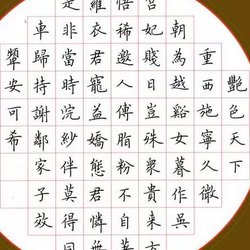 艷色天下
重西施寧久微
朝為越谿女暮作吳
宮妃賤日豈殊眾貴來方
悟稀邀人傅脂粉不自著
羅衣君寵益嬌態君憐無
是非當時浣紗伴莫得同
車歸持謝鄰家子效
顰安可希